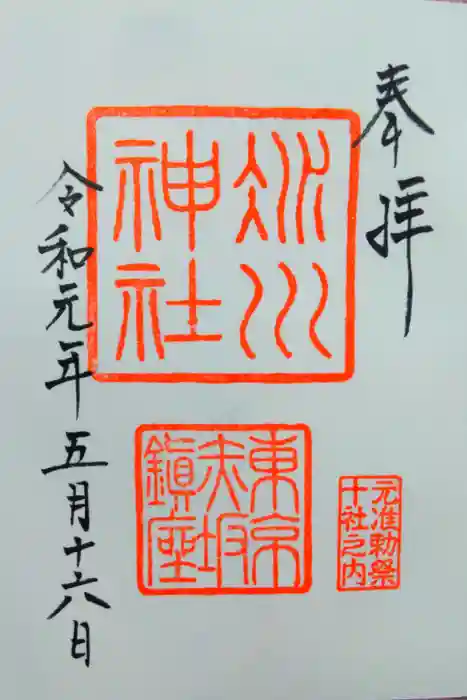 奉拝
氷川
神社
東京
赤坂
鎮座
元准勅祭
十社之内
令和元年五月十六日